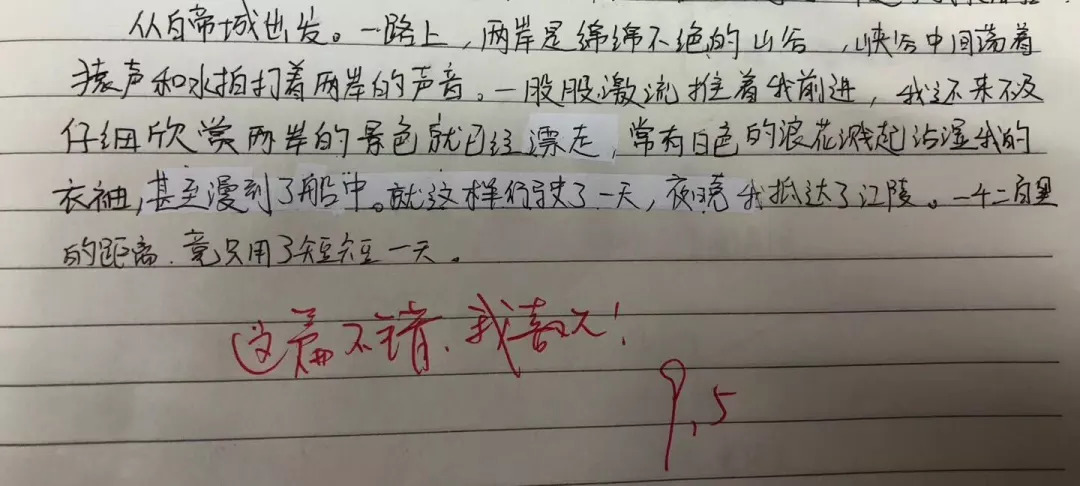 从白帝城出发。一路上，两岸是绵绵不绝的山谷，峡谷中回荡着
猿声和水拍打着两岸的声音。一股股激流推着我前进，我还来不及
仔细欣赏两岸的景色就已经漂走，常有白色的浪花溅起沾湿我的
衣袖，甚至漫到了船中。就这样行驶了一天，夜晓我抵达了江陵。一千二百里
的距离，竟只用了短短一天。
这篇不错，我喜欢！
9.5